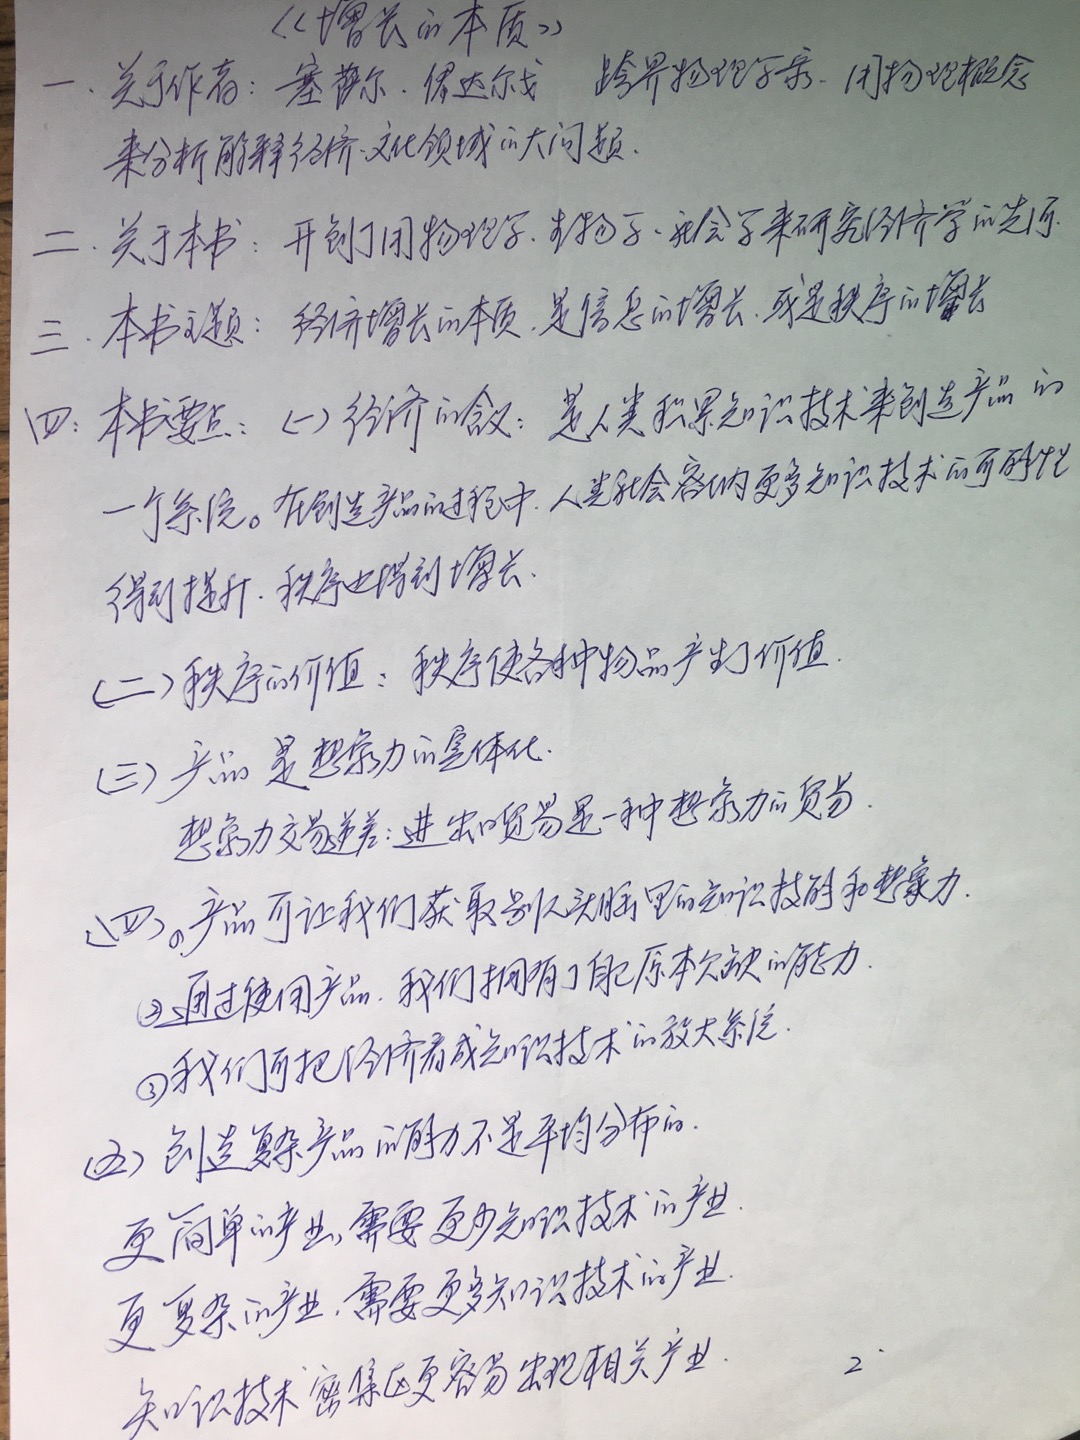 《增长的本质》
一. 关于作者: 塞萨尔.伊达尔戈 跨界物理学家. 用物理概念
来分析解释经济.文化领域的大问题.
二. 关于本书: 开创了用物理学.生物学.社会学来研究经济学的先河.
三. 本书主题: 经济增长的本质,是信息的增长.或是秩序的增长
四: 本书要点: (一)经济的含义: 是人类积累知识技术来创造产品的
一个系统。在创造产品的过程中.人类社会容纳更多知识技术的可能性
得到提升.秩序也得到增长.
(二)秩序的价值: 秩序使各种物品产生了价值.
(三)产品是想象力的实体化.
想象力交易逆差:进出口贸易是一种想象力的贸易.
(四)。产品可让我们获取别人头脑里的知识技能和想象力.
②通过使用产品.我们拥有了自己原本欠缺的能力.
③我们可把经济看成知识技术的放大系统.
(五)创造复杂产品的能力不是平均分布的.
更简单的产业,需要更少知识技术的产业.
更复杂的产业.需要更多知识技术的产业.
知识技术密集区更容易出现相关产业.
2.